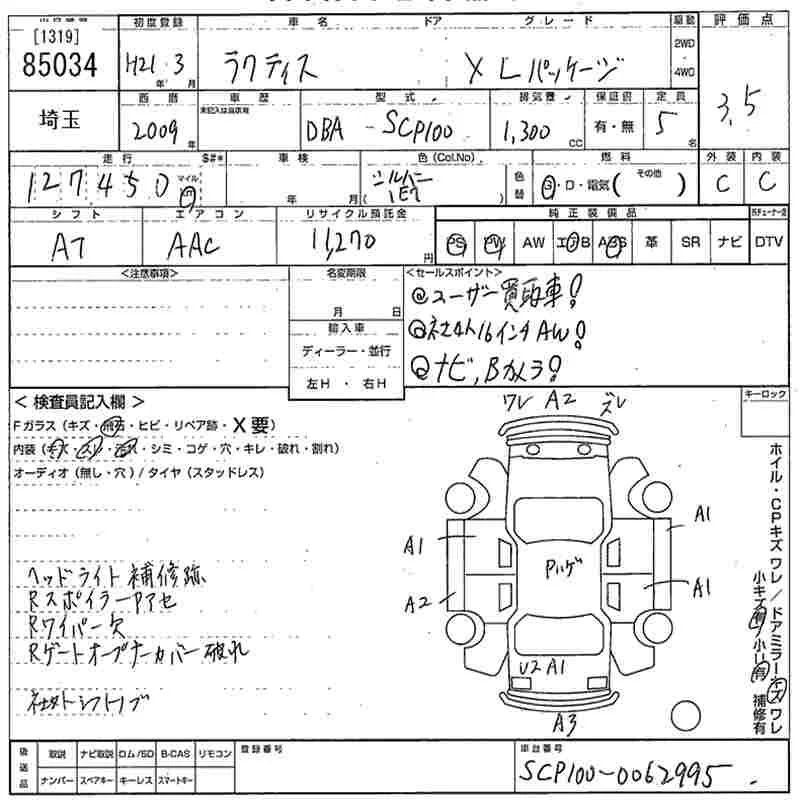 [1319]
85034
初度登録
H21年 3月
車名
ラクティス
ドア
グレード
X Lパッケージ
駆動
2WD
4WD
評価点
3.5
埼玉
西暦
2009年
車歴
未記入は自家用
型式
DBA - SCP100
排気量
1,300 CC
保証書
有・無
定員
5名
走行
127,450
マイル
Km
S#*
車検
年 月
色(Col.No)
シルバー
1E7
色替
燃料
G・D・電気( その他 )
外装
C
内装
C
シフト
AT
エアコン
AAC
リサイクル預託金
11,270円
純正装備品
PS PW AW エアB ABS 革 SR ナビ
DTV
<注意事項>
名変期限
月 日
輸入車
ディーラー・並行
左H・右H
<セールスポイント>
◎ユーザー買取車!
◎社外16インチAW!
◎ナビ, Bカメラ!
<検査員記入欄>
Fガラス(キズ・飛石・ヒビ・リペア跡・X要)
内装(キズ・スリ・汚れ・シミ・コゲ・穴・キレ・破れ・割れ)
オーディオ(無し・穴)/タイヤ(スタッドレス)
ヘッドライト補修跡
RスポイラーPアセ
Rワイパー欠
Rゲートオープナーカバー破れ
社外シフトノブ
ワレ A2 ズレ
A1
A1
A2
A1
Pハゲ
U2 A1
A3
キーロック
ホイル・CPキズワレ/ドアミラーキズワレ
小キズ有 小U有 補修有
後送品
取説 ナビ取説 ロム/SD B-CAS リモコン
ナンバー スペアキー キーレス スマートキー
登録番号
車台番号
SCP100-0062995